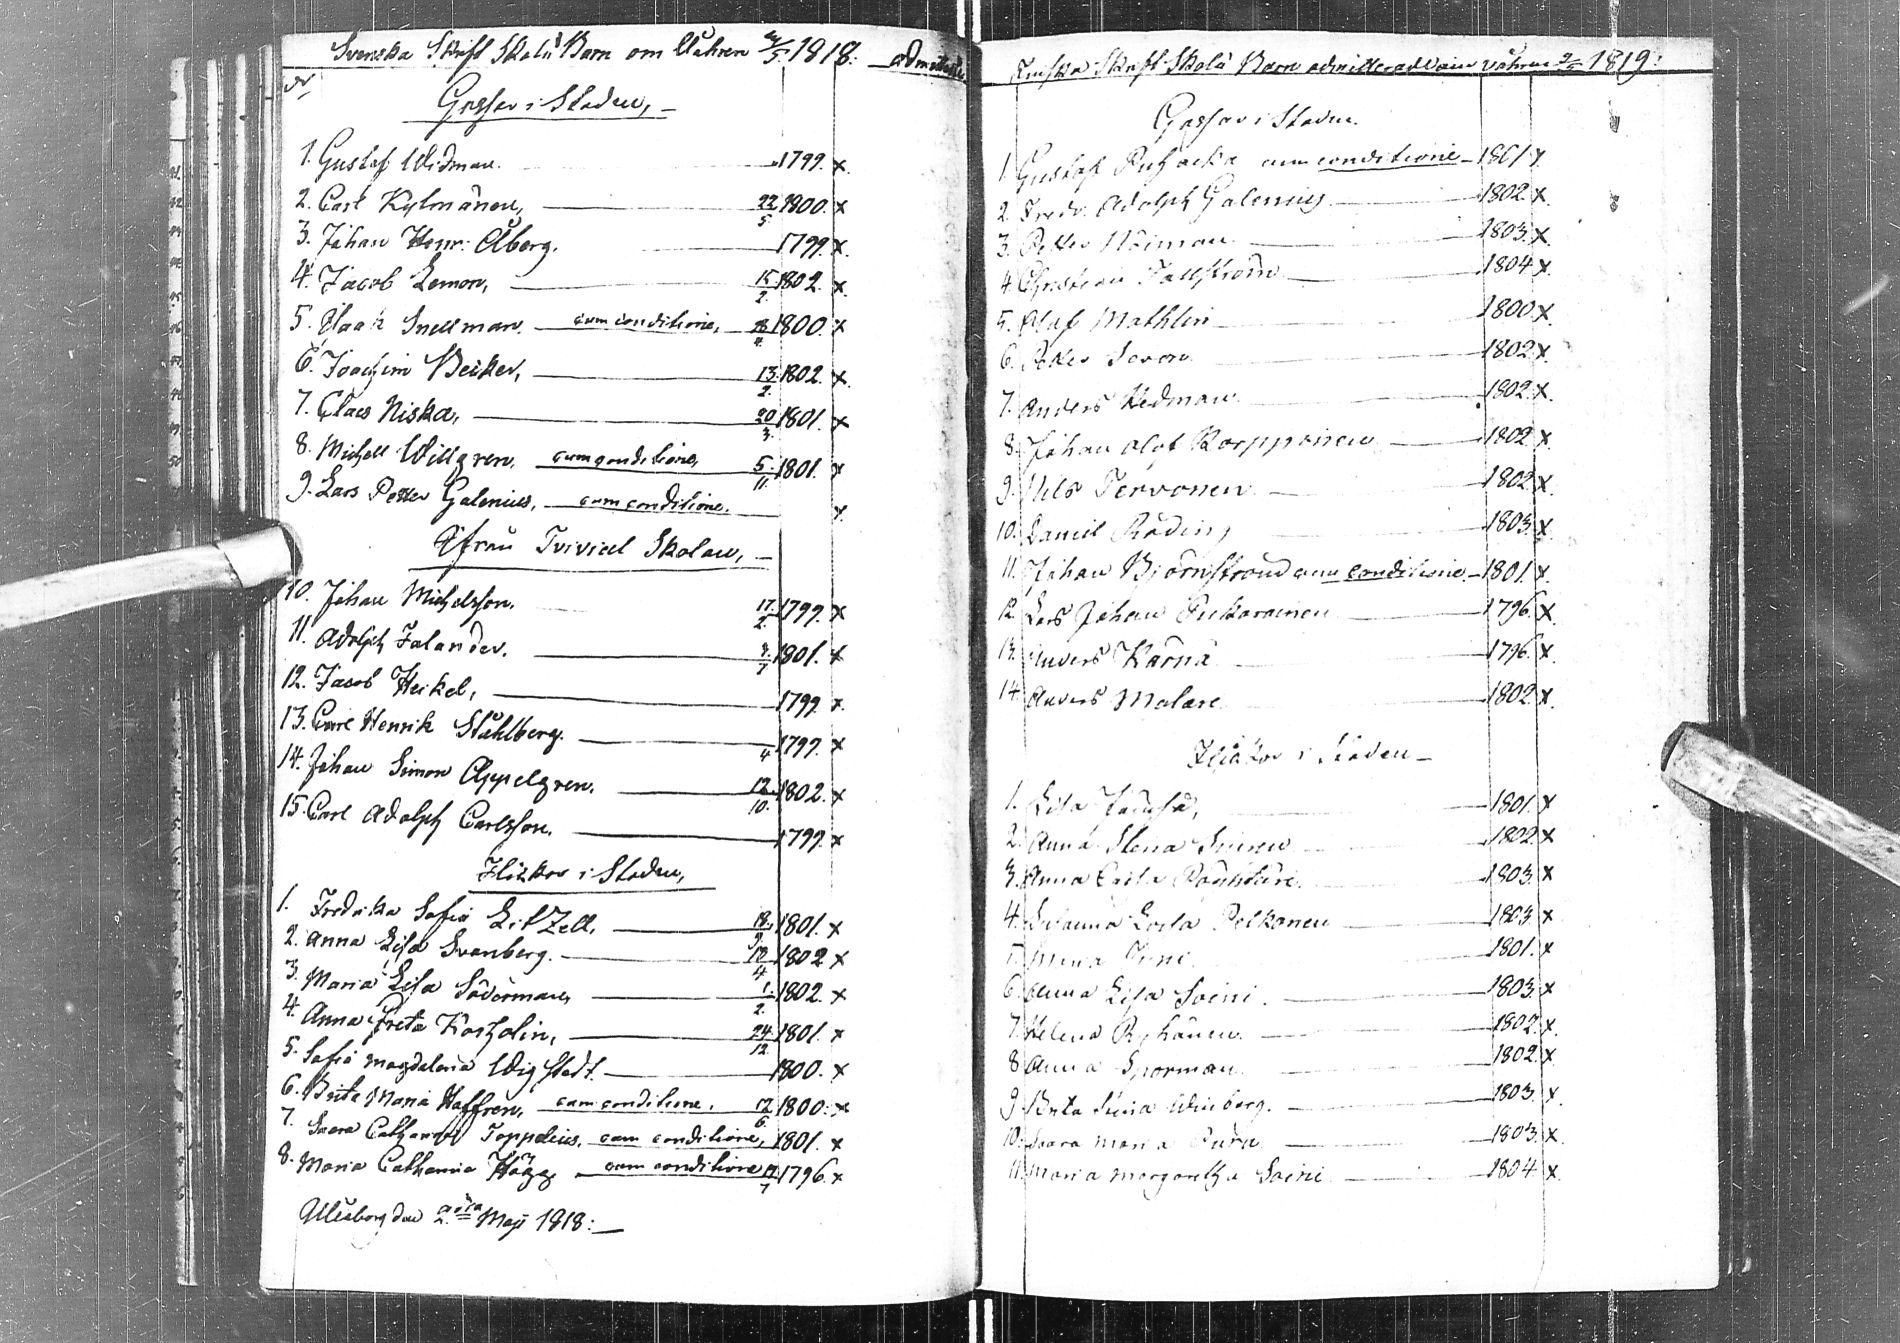 Svenska Skrift Skolä Barn om Våhren 2/5 1818:
Gossar i Staden,
1. Gustaf Widman. 1799. x
2. Carl Kylmänen, 22/5 1800. x
3. Johan Henr: Åberg. 1799. x
4. Jacob Lemon, 15/2 1802. x
5. Isaak Snellman. cum conditione, 1800. x
6. Joachim Becker, 13/2 1802. x
7. Claes Niska, 20/3 1801. x
8. Michell Willgren, cum conditione, 5/11 1801. x
9. Lars Petter Galenius, cum conditione. x
Ifrån Trivial Skolan,
10. Johan Michelsson. 17/2 1799. x
11. Adolph Falander. 1801. x
12. Jacob Heikel, 1799. x
13. Carl Henrik Ståhlberg. 1799. x
14. Johan Simon Appelgren. 12/10 1802. x
15. Carl Adolph Carlsson. 1799. x
Flickor i Staden,
1. Fredrika Sofia LitZell. 1801. x
2. Anna Lisa Svanberg. 12/4 1802 x
3. Maria Lisa Söderman, 1/2 1802. x
4. Anna Greta Korholin, 24/12 1801. x
5. Sofia Magdalena Wigstedt. 1800. x
6. Brita Maria Haffren, cum conditione. 12/6 1800. x
7. Saara Catharina Toppelius, cum conditione, 1801. x
8. Maria Catharina Hägg, cum conditione 1796. x
Uleåborg den 2. Maji 1818:
Finska Skrift Skolä Barn admitterad våhren 2/5 1819:
Gossar i Staden.
1. Gustaf cum conditione 1801 x
2. Fredr. Adolph Galenius 1802. x
3. Petter Näiman 1803. x
4. Christian Fallström 1804 x
5. Olof Mathlin 1800 x
6. Petter 1802. x
7. Anders Hedman 1802. x
8. Johan Olof Karpponen 1802 x
9. Nils Tervonen 1802. x
10. Daniel Röding 1803. x
11. Johan Björnstrand cum conditione 1801. x
12. Lars Johan Pukarainen 1796. x
13. Anders Kärnä 1796. x
14. Anders Malare 1802. x
Flickor i Staden
1. Lisa 1801. x
2. Anna Stena 1802. x
3. Anna Caisa 1803. x
4. Susanna Lovisa Pelkonen 1803 x
5. Maria 1801. x
6. Anna Lisa Soini. 1803. x
7. Helena Ryhänen. 1802. x
8. Anna Sporman 1802. x
9. Brita Winberg. 1803. x
10. Saara Maria Pura 1803. x
11. Maria Margaretha Soini 1804 x